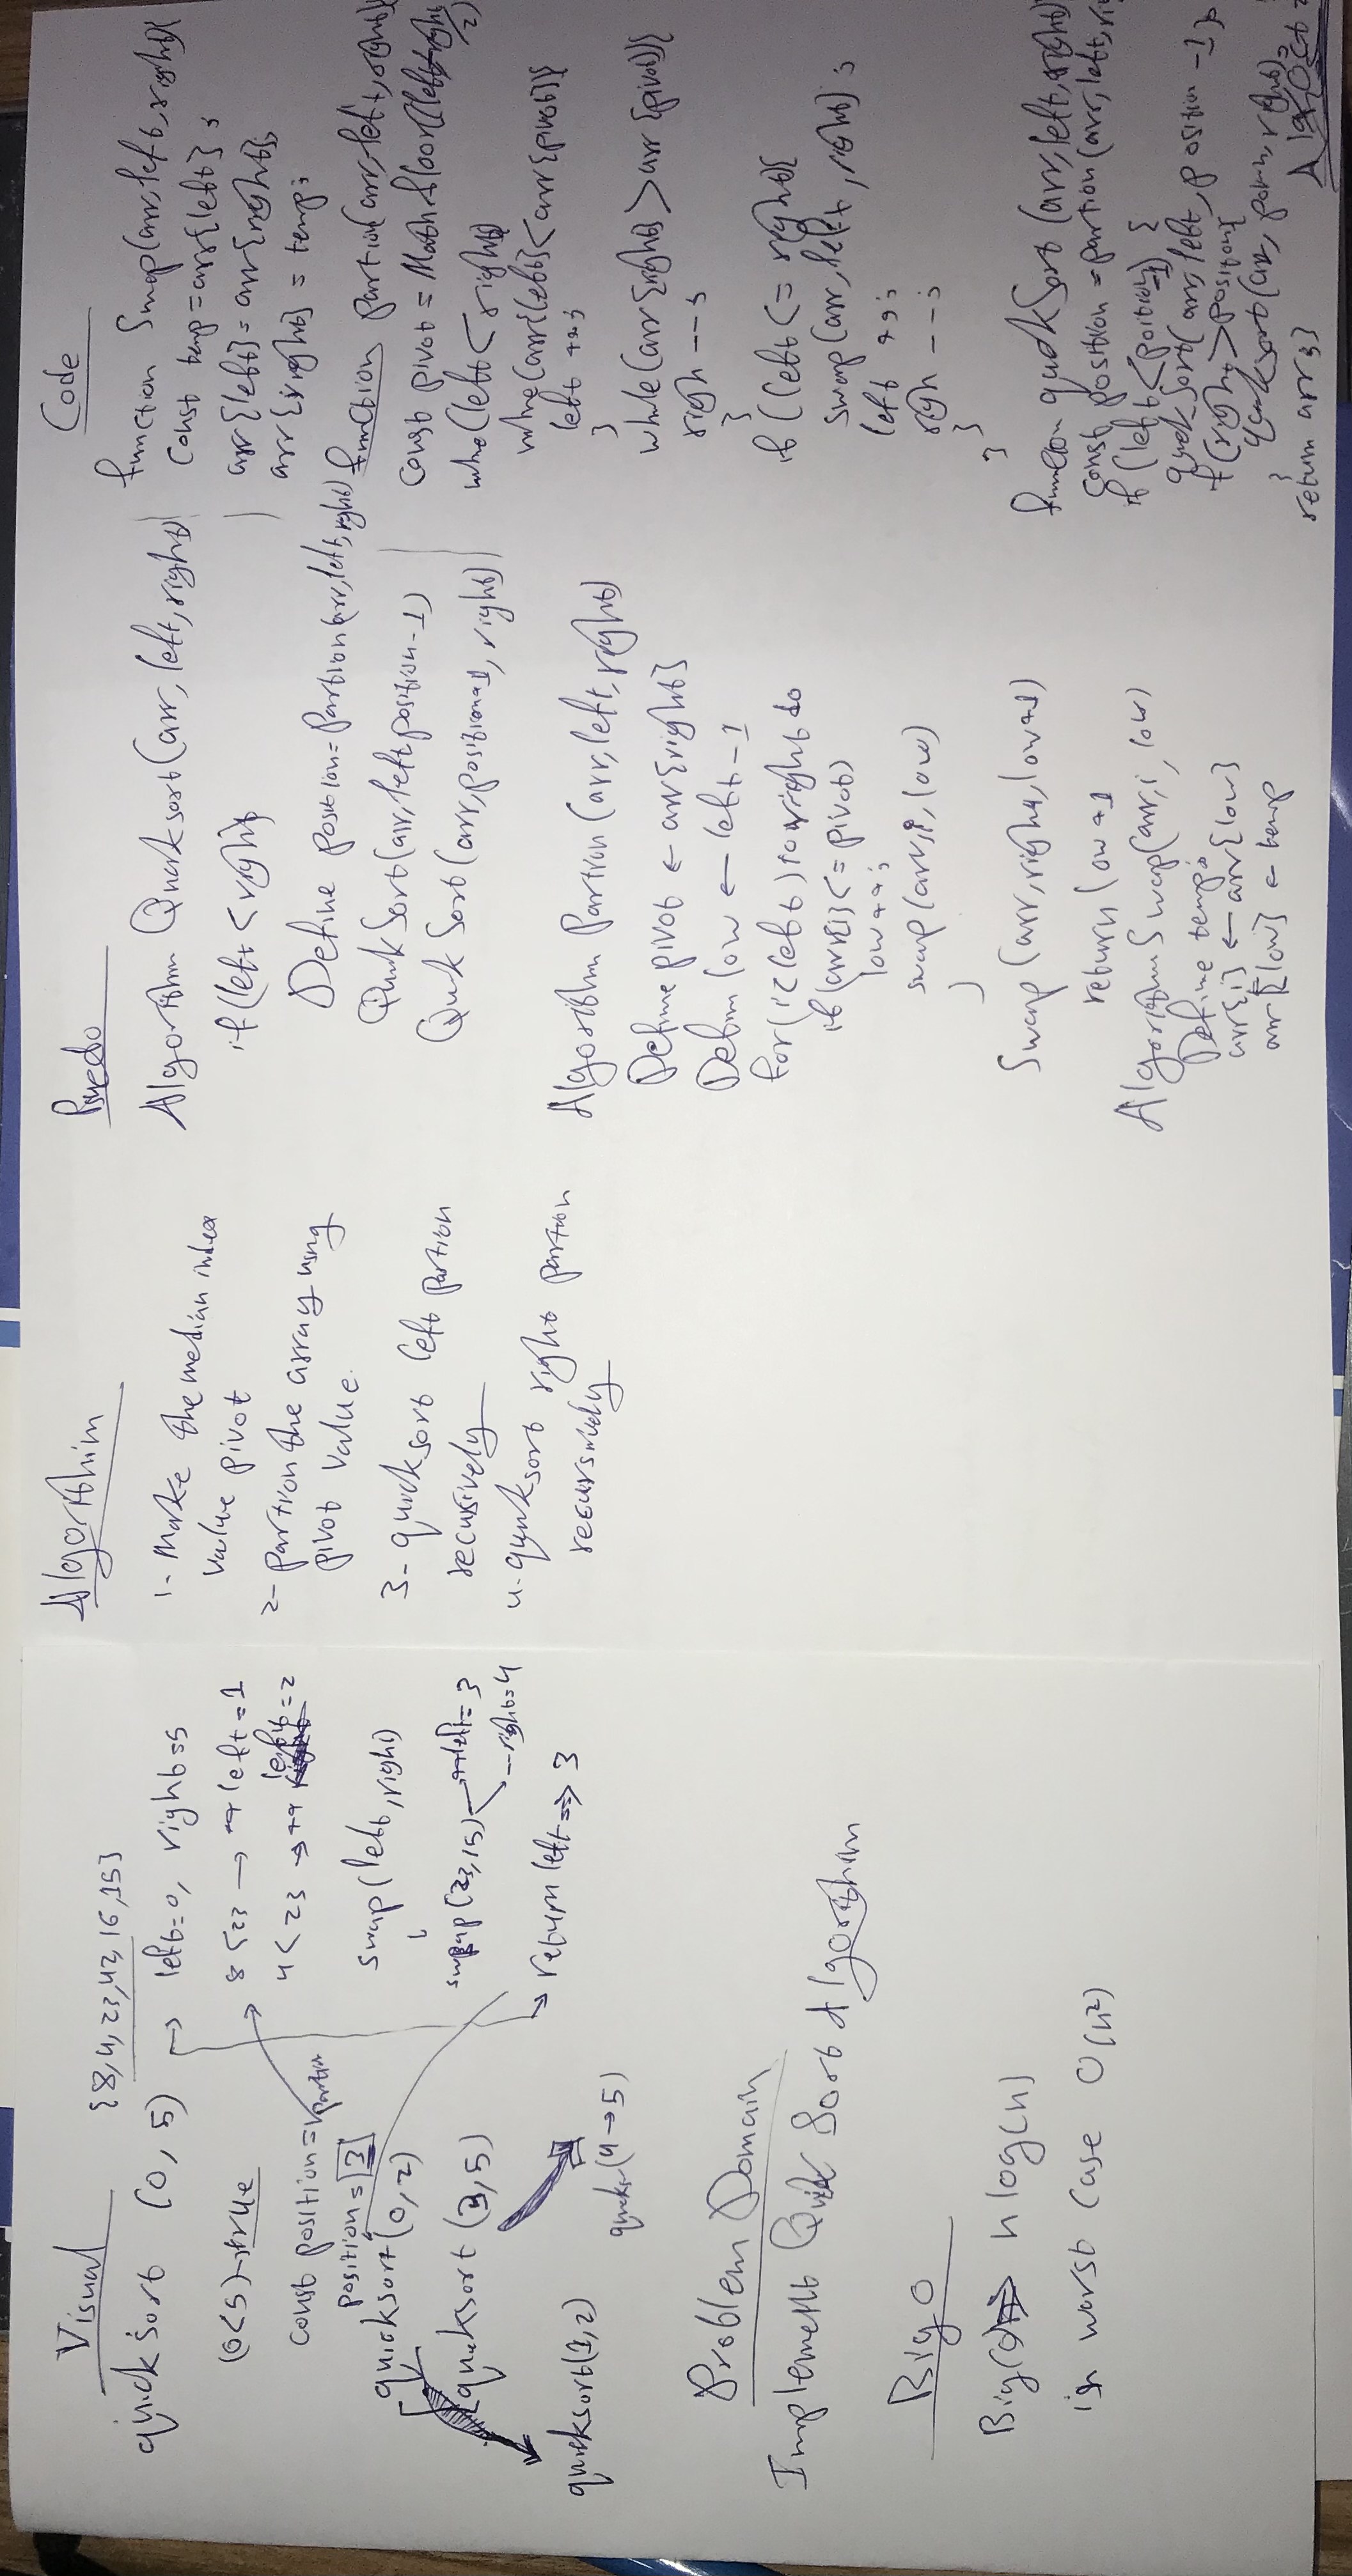 Visual
{8,4,23,42,16,15}
quick Sort (0, 5)
left=0, right=5
(0<5)→true
8 <23 → ++ left = 1
4 < 23 → ++ left = 2
const position = partion
position = 3
swap (left, right)
quicksort (0, 2)
swap (23, 15) ++left = 3
--right=4
quicksort (3, 5)
return left => 3
quicksort(1,2)
quicks (4→5)
Problem Domain
Implement Quik Sort Algorithim
Big O
Big(O) => n log(n)
in worst case O(n²)
Algorithim
1- Make the median index
value pivot
2- partion the array using
pivot value.
3- quicksort left partion
recusively
4- quicksort right partion
recursively
Psuedo
Algorithm Quicksort (arr, left, right)
if (left < right)
Define position = Partion (arr, left, right)
Quick Sort (arr, left position - 1)
Quick Sort (arr, position+1, right)
Algorithm Partion (arr, left, right)
Define pivot ← arr{right}
Defin low ← left - 1
for (i< left) to right do
if (arr{i} <= pivot)
low ++;
swap (arr, i, low)
}
Swap (arr, right, low+1)
return low +1
Algorithm Swap (arr, i, low)
Define temp;
arr{i} ← arr{low}
arr{low} ← temp
Code
function Swap (arr, left, right){
const temp = arr{left} ;
arr{left} = arr{right};
arr{right} = temp;
function partion (arr, left, right){
const pivot = Math.floor((left+right
/2)
while (left < right)
while (arr{left} < arr{pivot}){
left ++;
}
while (arr {right} > arr {pivot}){
righ --;
}
if (left <= right){
swap (arr, left, right) ;
left ++;
righ --;
}
}
function quickSort (arr, left, right)
const position = partion (arr, left, ri
if (left < poition-1) {
quick Sort( arr, left, position -1);
if (right > position{
quicksort (arr, right);
}
return arr;}